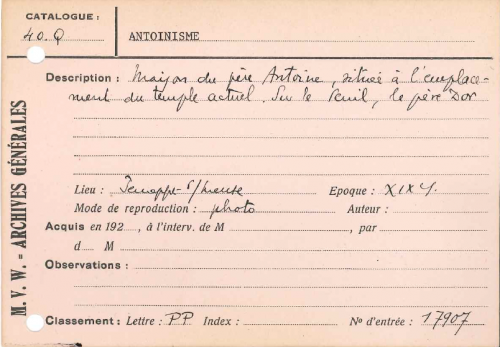 CATALOGUE :
40.Q
ANTOINISME
Description : Maison du père Antoine, située à l'emplace-
ment du temple actuel. Sur le seuil, le père Dor
Lieu : Jemeppe s/meuse Epoque : XIX
Mode de reproduction : photo Auteur :
Acquis en 192 , à l'interv. de M , par
d M
Observations :
Classement : Lettre : PP Index : N° d'entrée : 17907
M. V. W. = ARCHIVES GÉNÉRALES